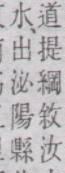 道提綱敘汝
水出泌陽縣